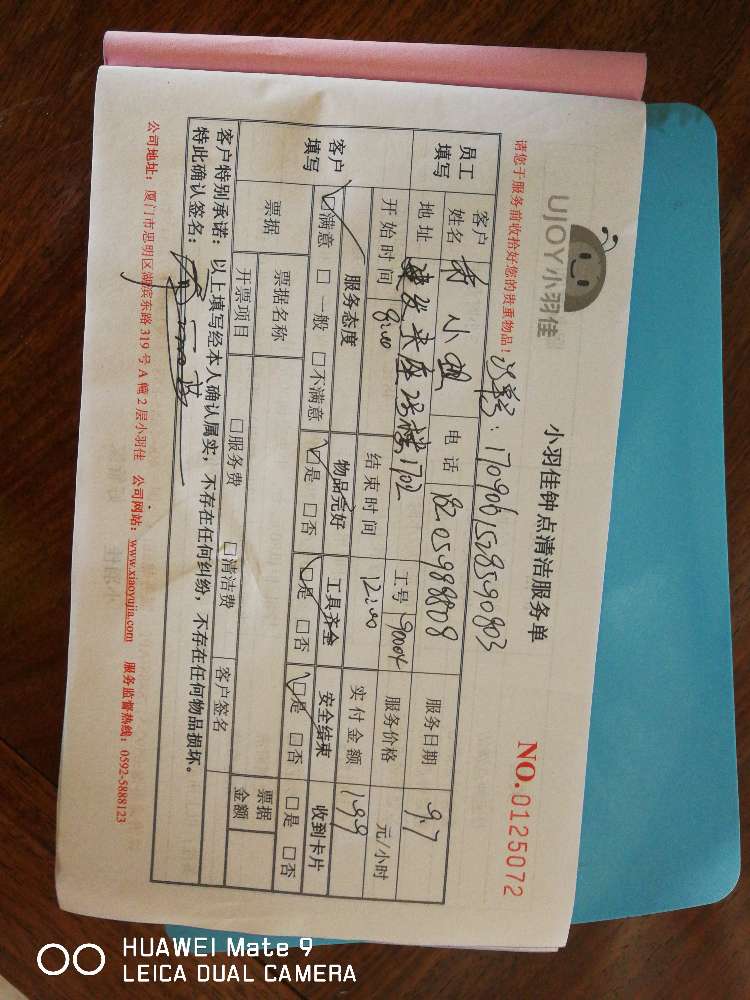 UJOY小羽佳
小羽佳钟点清洁服务单
NO.0125072
请您于服务前收拾好您的贵重物品！
员工填写 客户姓名 小姐 电话 18205988809 服务日期 9.7
地址 座 楼1702 工号 90004 服务价格 元/小时
开始时间 8:00 结束时间 12:00 实付金额 199
客户填写 服务态度 物品完好 工具齐全 安全结束 收到卡片
☑满意 □一般 □不满意 ☑是 □否 ☑是 □否 ☑是 □否 □是 □否
票据 票据名称 □服务费 □清洁费 客户签名 票据金额
开票项目
客户特别承诺：以上填写经本人确认属实，不存在任何纠纷，不存在任何物品损坏。
特此确认签名：
公司地址：厦门市思明区湖滨东路 319 号 A 幢 2 层小羽佳 公司网站：www.xiaoyujia.com 服务监督热线：0592-5888123
HUAWEI Mate 9
LEICA DUAL CAMERA